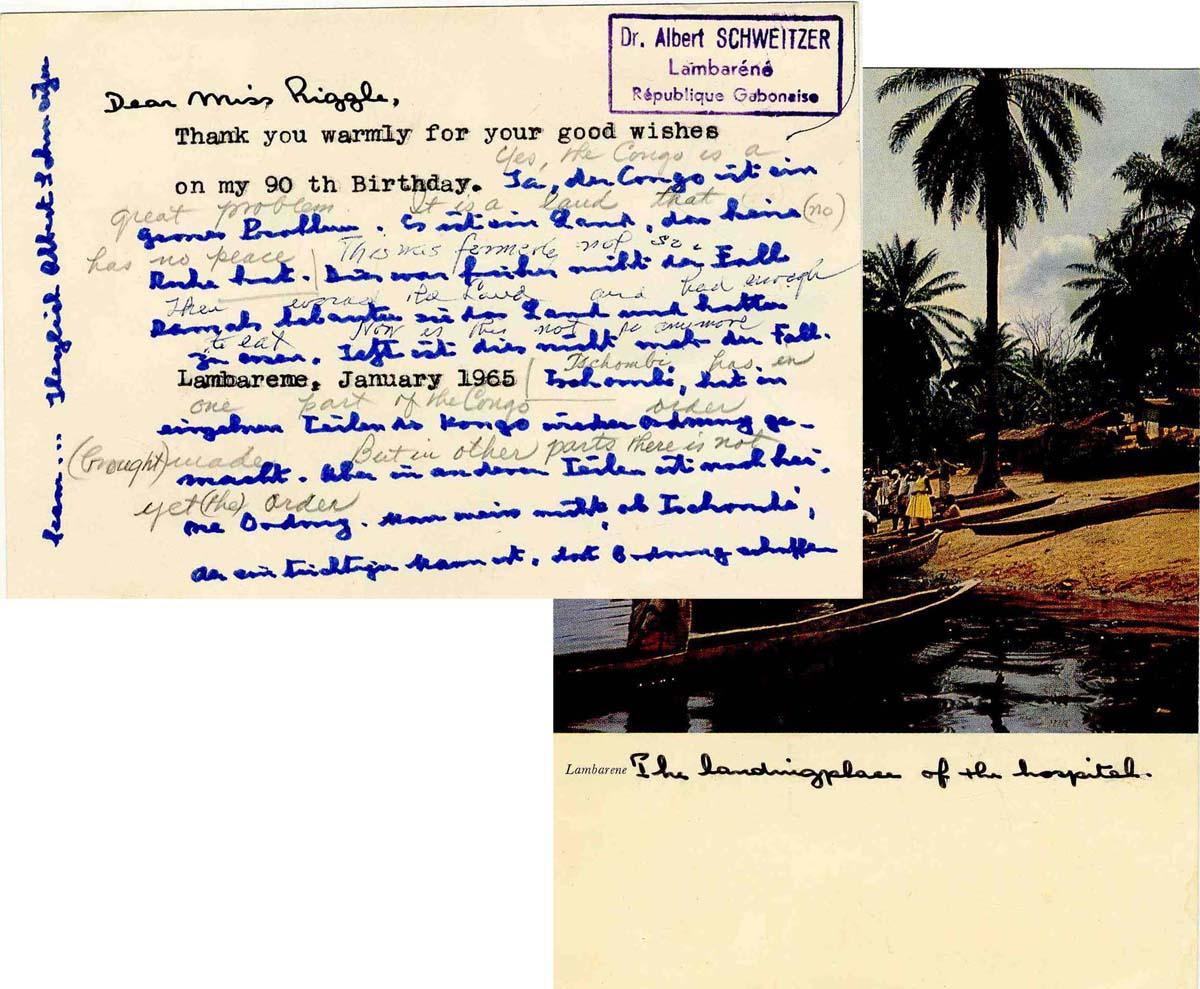 Dr. Albert SCHWEITZER
Lambaréné
République Gabonaise
Dear Miss Riggle,
Thank you warmly for your good wishes
Yes, the Congo is a
on my 90 th Birthday. Ja, der Congo ist ein
great problem. It is a land that
grosses Problem. Es ist ein Land, das keine (no)
has no peace This was formerly not so.
Ruhe hat. Dies war früher nicht der Fall.
Then the land and had enough
Damals bebauten sie das Land und hatten
to eat Now is this not so anymore
zu essen. Jetzt ist dies nicht mehr der Fall.
Tschombi has en
Lambarene, January 1965 Tschombé, hat in
one part of the Congo order
einzelnen Teilen des Kongo wieder Ordnung ge-
(brought) made But in other parts there is not
macht. Aber in anderen Teilen ist noch kei-
yet (the) order
ne Ordnung. Man weiss nicht, ob Tschombé,
der ein tüchtiger Mann ist, dort Ordnung schaffen
kann... Herzlich Albert Schweitzer
Lambarene The landingplace of the hospital.